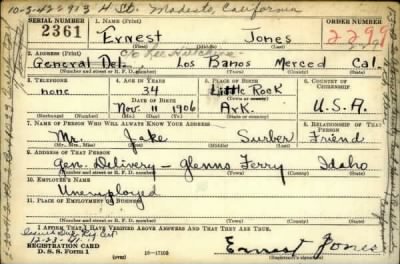 10-3-42 - 913 H St. Modesto, California
SERIAL NUMBER
1. NAME (Print)
ORDER NUMBER
2361
Ernest Jones
2299
(First) (Middle) (Last)
2. ADDRESS (Print)
General Del. Los Banos Merced Cal.
(Number and street or R. F. D. number) (Town) (County) (State)
3. TELEPHONE
4. AGE IN YEARS
5. PLACE OF BIRTH
6. COUNTRY OF CITIZENSHIP
none
34
Little Rock
DATE OF BIRTH
U.S.A.
Nov 11 1906
Ark.
7. NAME OF PERSON WHO WILL ALWAYS KNOW YOUR ADDRESS
8. RELATIONSHIP OF THAT PERSON
Mr. Jake Surber Friend
(Mr., Mrs., Miss) (First) (Middle) (Last)
9. ADDRESS OF THAT PERSON
Gen. Delivery - Glenns Ferry Idaho
(Number and street or R. F. D. number) (Town) (County) (State)
10. EMPLOYER'S NAME
Unemployed
11. PLACE OF EMPLOYMENT OR BUSINESS
(Number and street or R. F. D. number) (Town) (County) (State)
I AFFIRM THAT I HAVE VERIFIED ABOVE ANSWERS AND THAT THEY ARE TRUE.
REGISTRATION CARD
D. S. S. FORM 1
16-17105
Ernest Jones